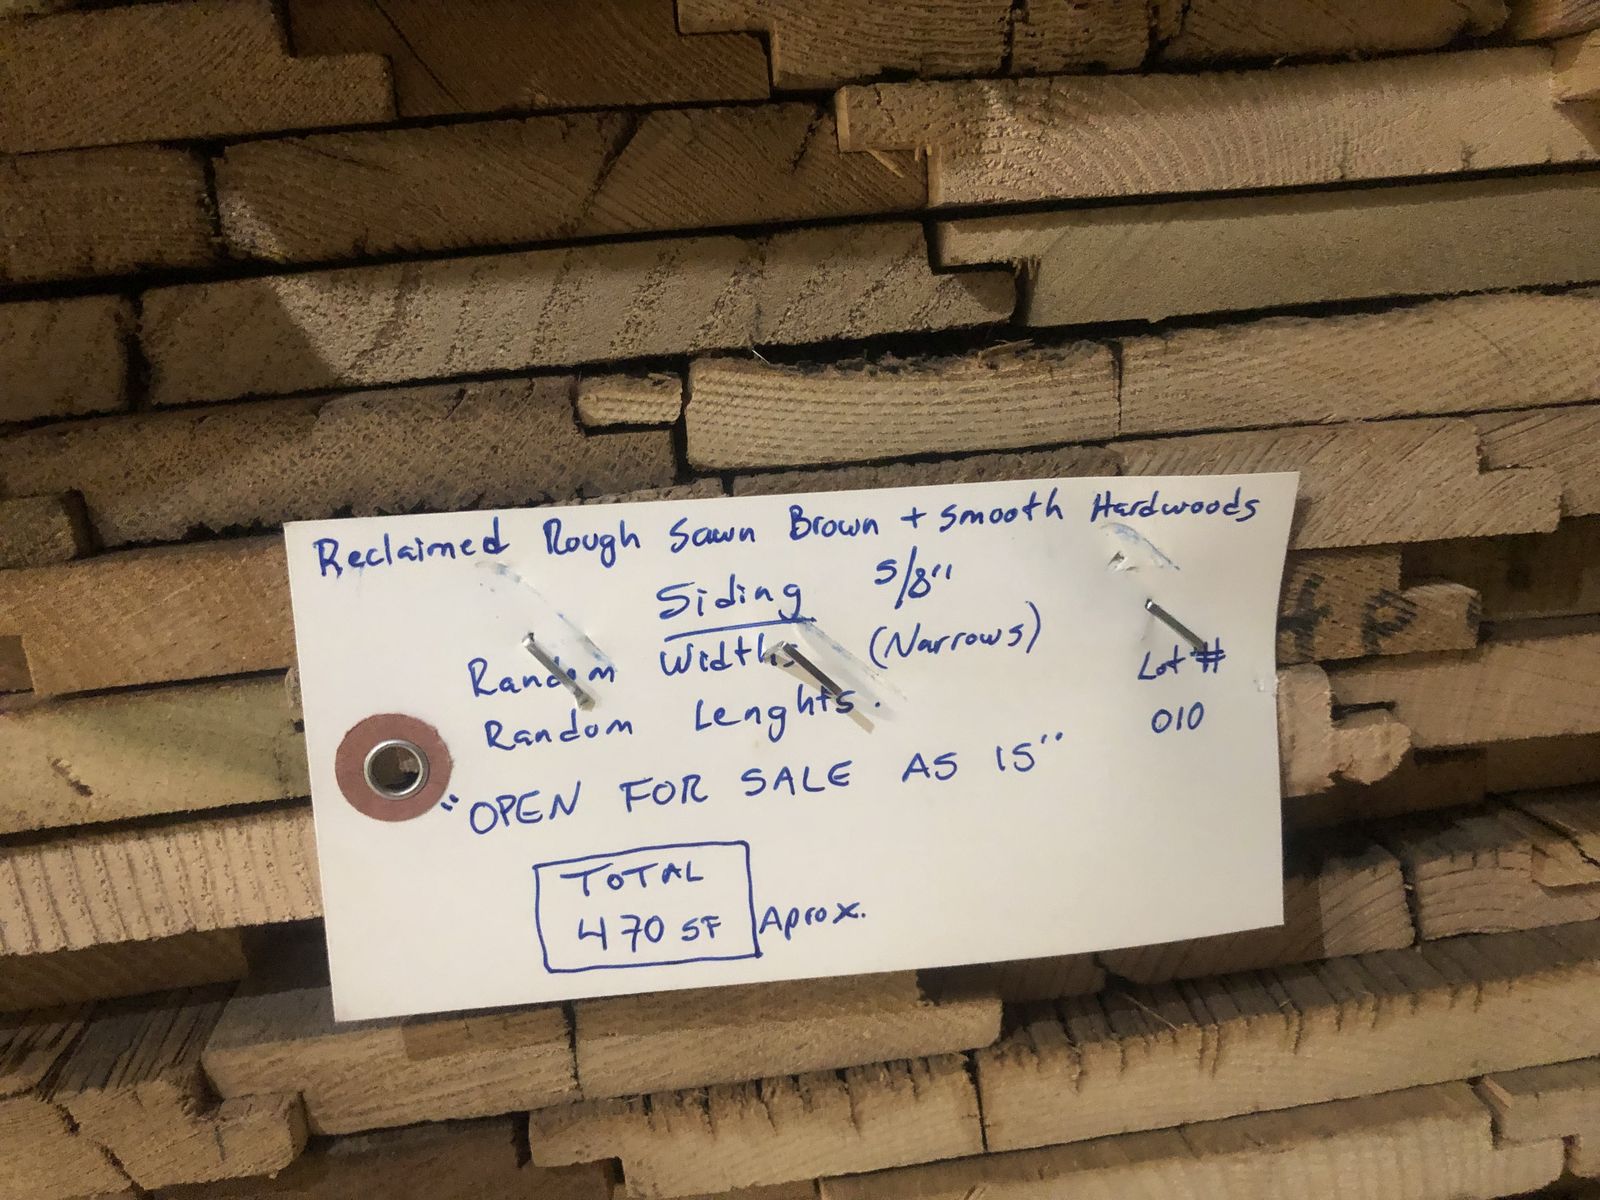 Reclaimed Rough Sawn Brown + Smooth Hardwoods
Siding 5/8"
Random Widths (Narrows)
Random Lenghts.
Lot #
010
"OPEN FOR SALE AS IS"
TOTAL
470 SF Aprox.